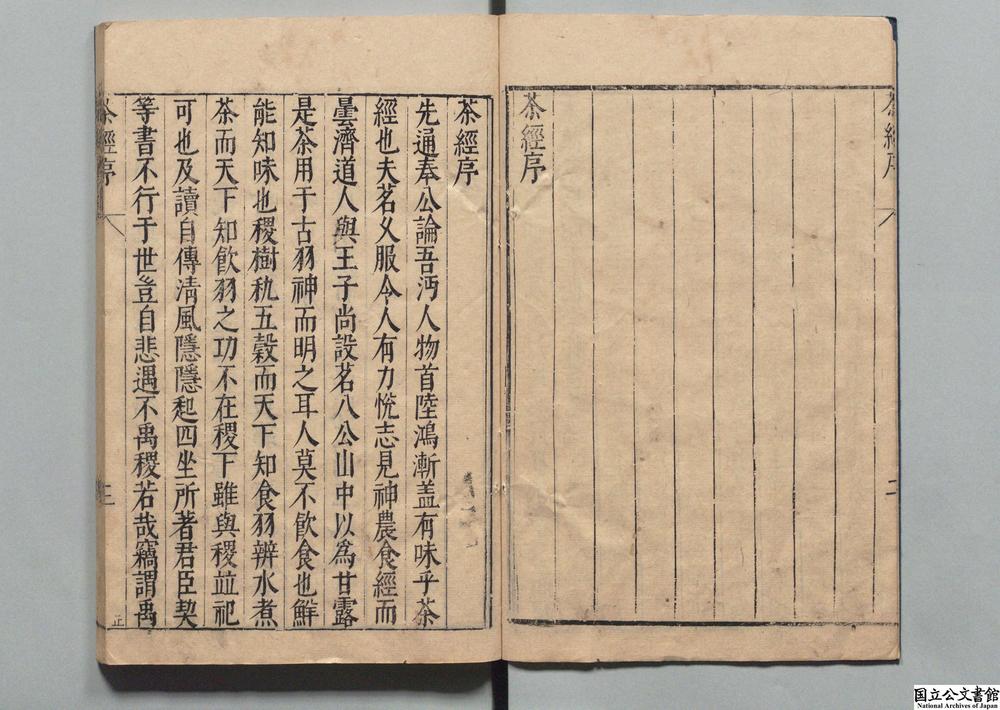 茶經序
茶經序
茶經序
先通奉公論吾沔人物首陸鴻漸盖有味乎茶
經也夫茗久服令人有力悅志見神農食經而
曇濟道人與王子尚設茗八公山中以為甘露
是茶用于古羽神而明之耳人莫不飲食也鮮
能知味也稷樹秇五榖而天下知食羽辨水煮
茶而天下知飲羽之功不在稷下雖與稷竝祀
可也及讀自傳清風隱隱起四坐所著君臣契
等書不行于世豈自悲遇不禹稷若哉竊謂禹
茶經序
三
国立公文書館
National Archives of Japan